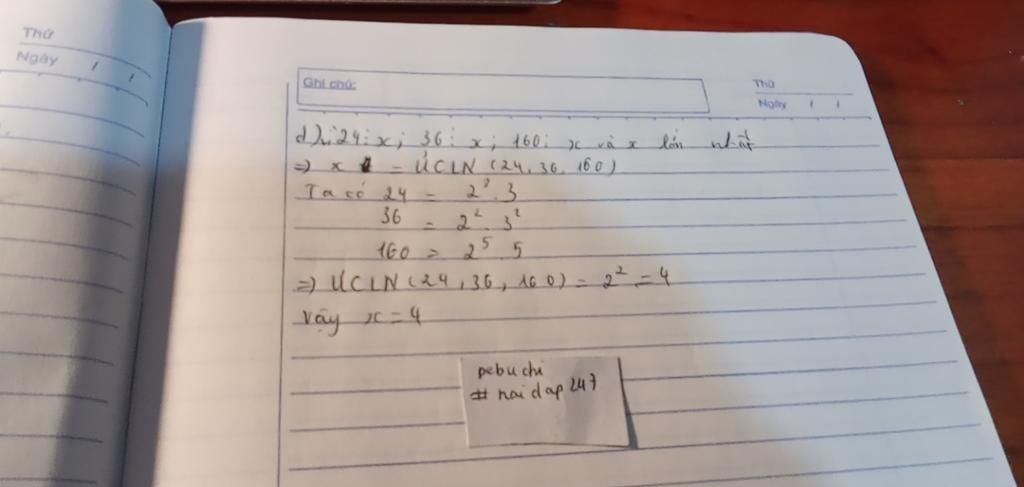 Thứ
Ngày / /
Ghi chú:
Thứ
Ngày / /
d) Vì 24 ⋮ x ; 36 ⋮ x ; 160 ⋮ x và x lớn nhất
=> x = ƯCLN (24, 36, 160)
Ta có 24 = 2³. 3
36 = 2². 3²
160 = 2⁵. 5
=> ƯCLN (24, 36, 160) = 2² = 4
Vậy x = 4
pebuchi
# hoidap247